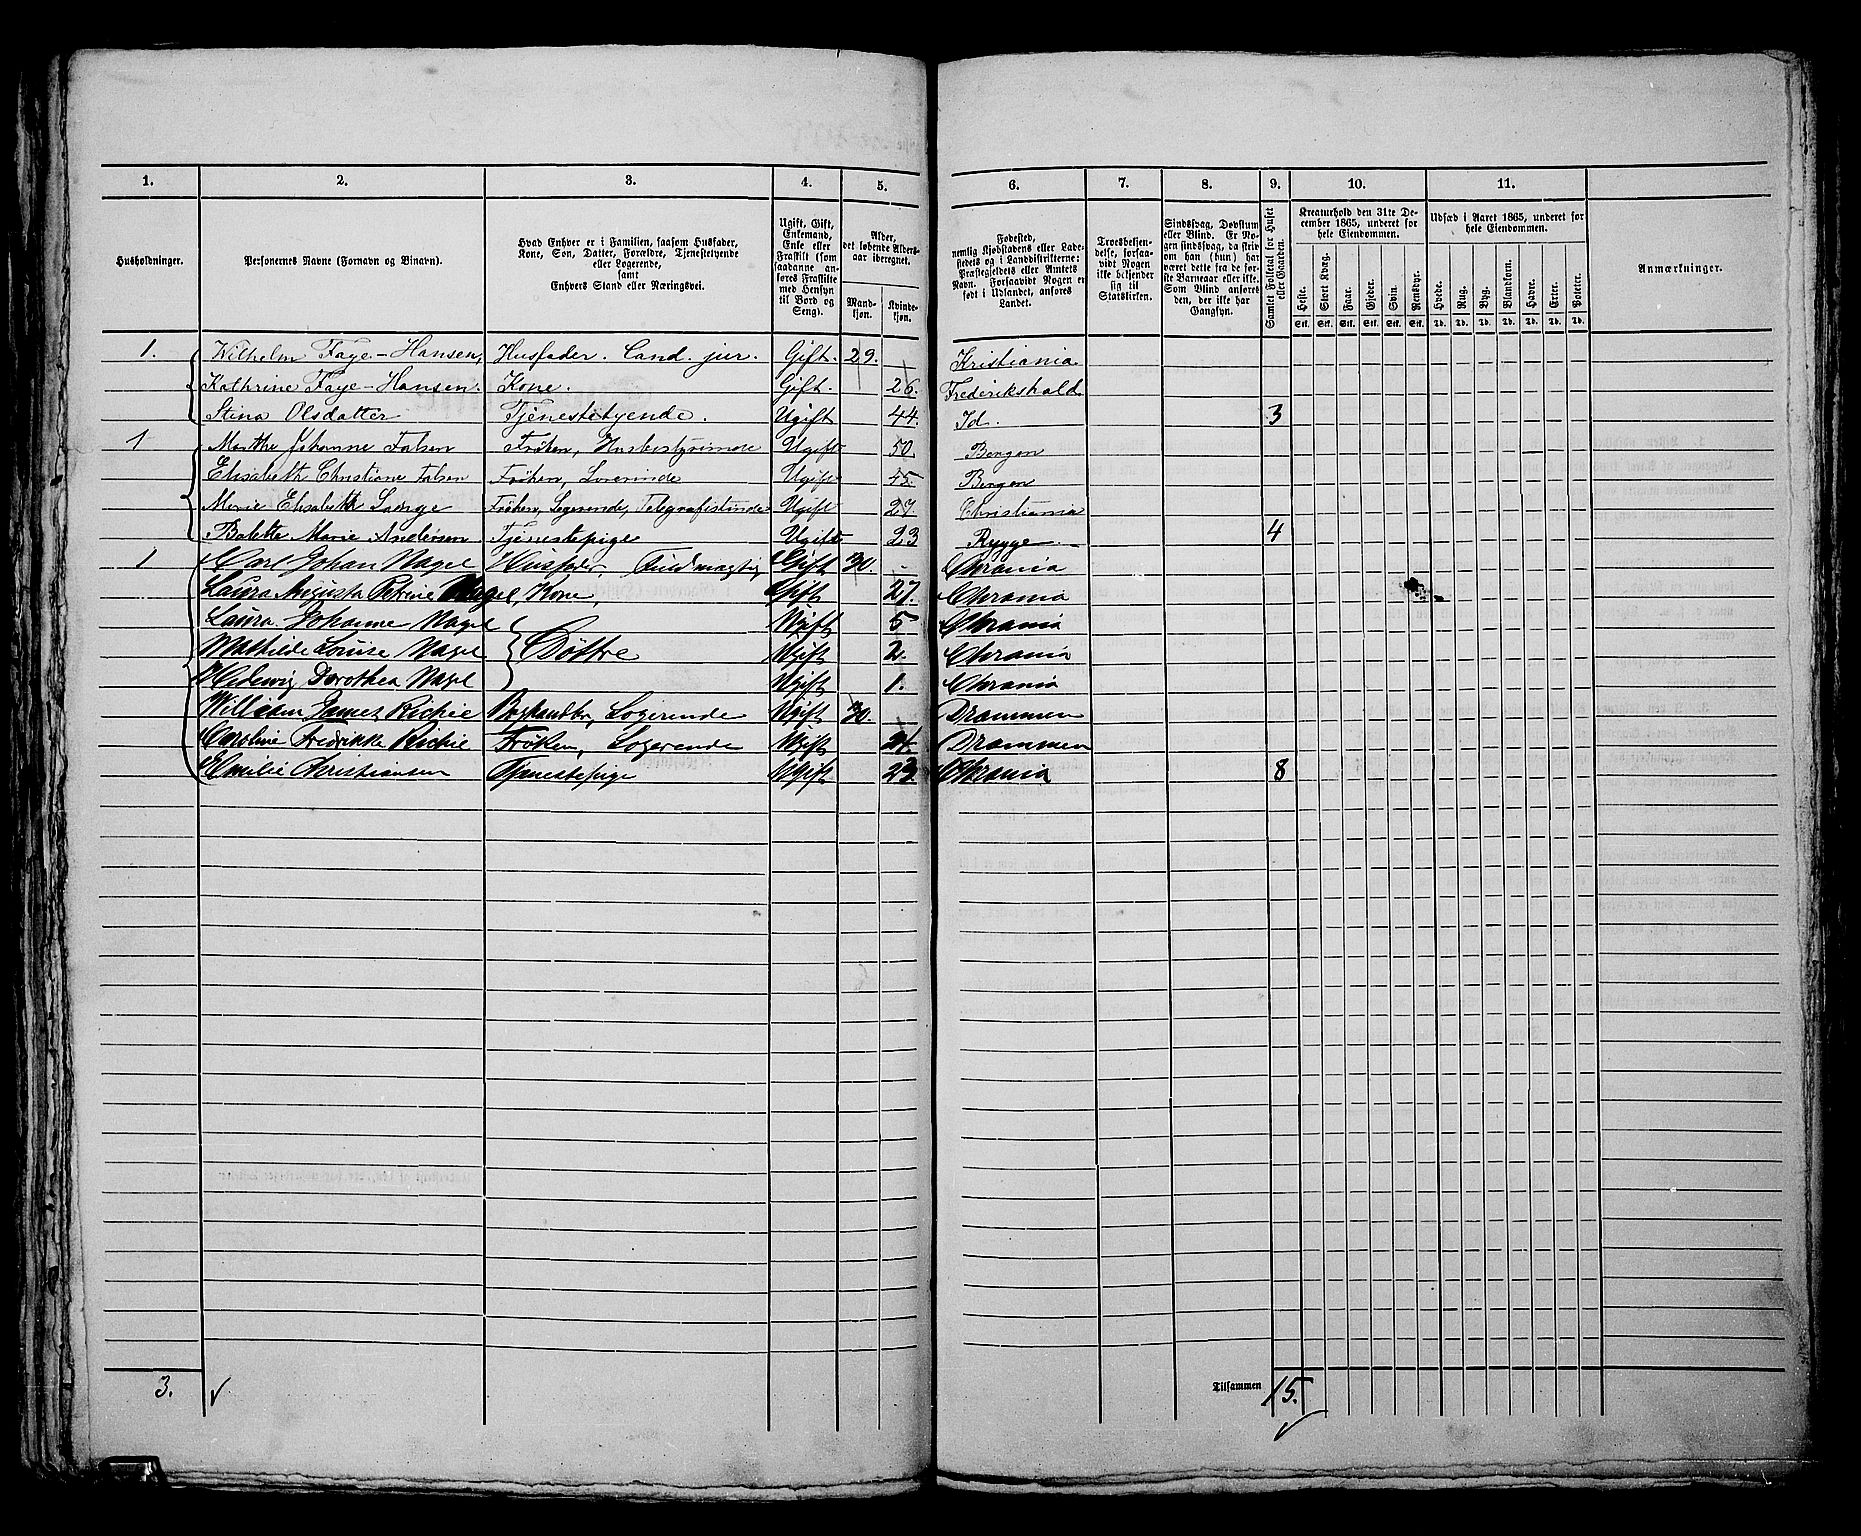 1. 2. 3. 4. 5. 6. 7. 8. 9. 10. 11.
Husholdninger.
Personernes Navne (Fornavn og Binavn).
Hvad Enhver er i Familien, saasom Husfader, Kone, Søn, Datter, Forældre, Tjenestetyende eller Logerende, samt Enhvers Stand eller Næringsvei.
Ugift, Gift, Enkemand, Enke eller Fraskilt (som saadanne anføres Fraskilte med Hensyn til Bord og Seng).
Alder, det løbende Aldersaar iberegnet.
Mandkjøn. Kvindekjøn.
Fødested, nemlig Kjøbstadens eller Ladestedets og i Landdistrikterne: Præstegjeldets eller Amtets Navn. Forsaavidt Nogen er født i Udlandet, anføres Landet.
Troesbekjendelse, forsaavidt Nogen ikke bekjender sig til Statskirken.
Sindssvag, Døvstum eller Blind. Er Nogen sindssvag, da skriv om han (hun) har været dette fra de første Barneaar eller ikke. Som Blind anføres den, der ikke har Gangsyn.
Samlet Folketal for Huset eller Gaarden.
Kreaturhold den 31te December 1865, underet for hele Eiendommen.
Heste. Stort Kvæg. Faar. Gjeder. Svin. Rensdyr.
Stk. Stk. Stk. Stk. Stk. Stk.
Udsæd i Aaret 1865, underet for hele Eiendommen.
Hvede. Rug. Byg. Blandkorn. Havre. Erter. Poteter.
Td. Td. Td. Td. Td. Td. Td.
Anmærkninger.
1. Wilhelm Faye-Hansen, Husfader. Cand. jur. Gift. 29. Kristiania
Kathrine Faye-Hansen. Kone. Gift. 26. Frederikshald.
Stina Olsdatter Tjenestetyende. Ugift 44. Id. 3
1 Marthe Johanne Falsen Frøken, Husbestyrinde Ugift 50 Bergen
Elisabeth Christiane Falsen Frøken, Ugift 45. Bergen
Marie Elisabeth Lange Frøken, Logerende, Telegrafistinde Ugift 27. Christiania
Bolette Marie Andersen Tjenestepige Ugift 23 Rygge 4
1 Carl Johan Nagel Husfader, Fuldmægtig Gift 30. Chrania
Laura Augusta Petrine Nagel, Kone, Gift 27. Chrania
Laura Johanne Nagel Ugift 5 Chrania
Mathilde Louise Nagel Døttre Ugift 2. Chrania
Hedewig Dorothea Nagel Ugift 1. Chrania
William James Richie Boghandler, Logerende Ugift 30. Drammen
Caroline Fredrikke Richie Frøken, Logerende Ugift Drammen
Emilie Christiansen Tjenestepige Ugift 23 Chrania 8
3. Tilsammen 15.